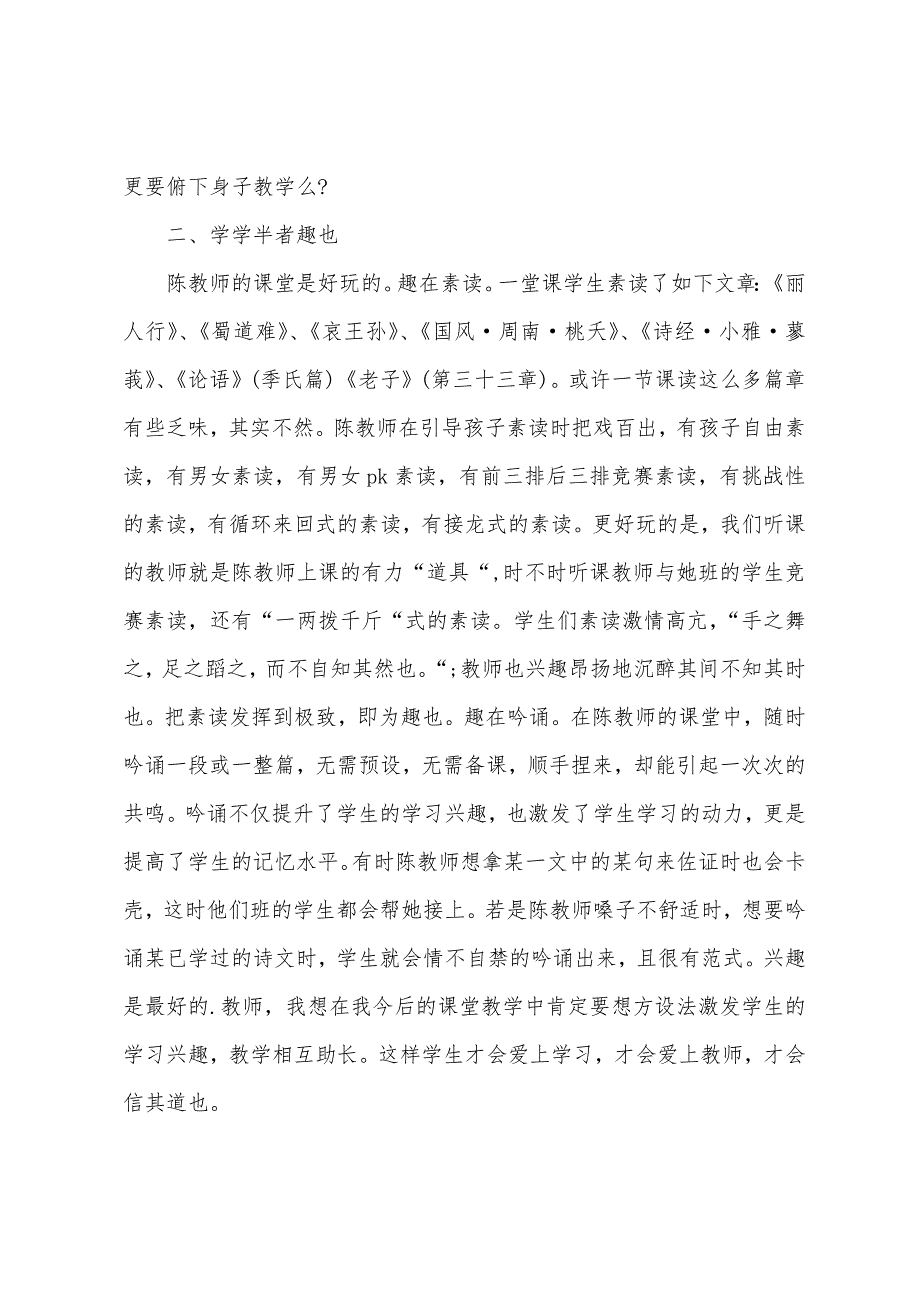 更要俯下身子教学么?
二、学学半者趣也
陈教师的课堂是好玩的。趣在素读。一堂课学生素读了如下文章:《丽
人行》、《蜀道难》、《哀王孙》、《国风·周南·桃夭》、《诗经·小雅·蓼
莪》、《论语》(季氏篇)《老子》(第三十三章)。或许一节课读这么多篇章
有些乏味，其实不然。陈教师在引导孩子素读时把戏百出，有孩子自由素
读，有男女素读，有男女pk素读，有前三排后三排竞赛素读，有挑战性
的素读，有循环来回式的素读，有接龙式的素读。更好玩的是，我们听课
的教师就是陈教师上课的有力“道具“,时不时听课教师与她班的学生竞
赛素读，还有“一两拨千斤“式的素读。学生们素读激情高亢，“手之舞
之，足之蹈之，而不自知其然也。“;教师也兴趣昂扬地沉醉其间不知其时
也。把素读发挥到极致，即为趣也。趣在吟诵。在陈教师的课堂中，随时
吟诵一段或一整篇，无需预设，无需备课，顺手捏来，却能引起一次次的
共鸣。吟诵不仅提升了学生的学习兴趣，也激发了学生学习的动力，更是
提高了学生的记忆水平。有时陈教师想拿某一文中的某句来佐证时也会卡
壳，这时他们班的学生都会帮她接上。若是陈教师嗓子不舒适时，想要吟
诵某已学过的诗文时，学生就会情不自禁的吟诵出来，且很有范式。兴趣
是最好的.教师，我想在我今后的课堂教学中肯定要想方设法激发学生的
学习兴趣，教学相互助长。这样学生才会爱上学习，才会爱上教师，才会
信其道也。